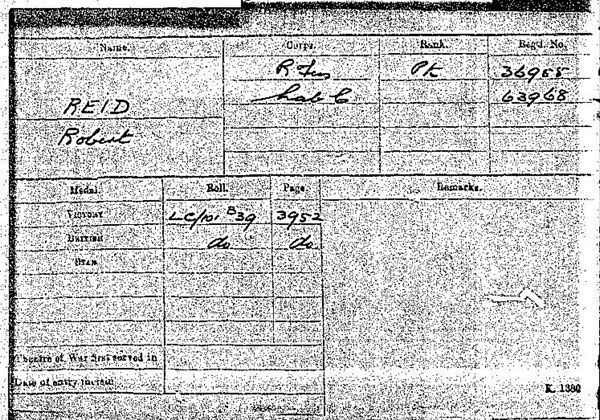 Name. Corps. Rank. Regtl. No.
R Fus Pte
REID Lab C 63968
Robert
Medal. Roll. Page. Remarks.
VICTORY LC/101 B39 3952
BRITISH do do
STAR
Theatre of War first served in
Date of entry therein
K. 1380